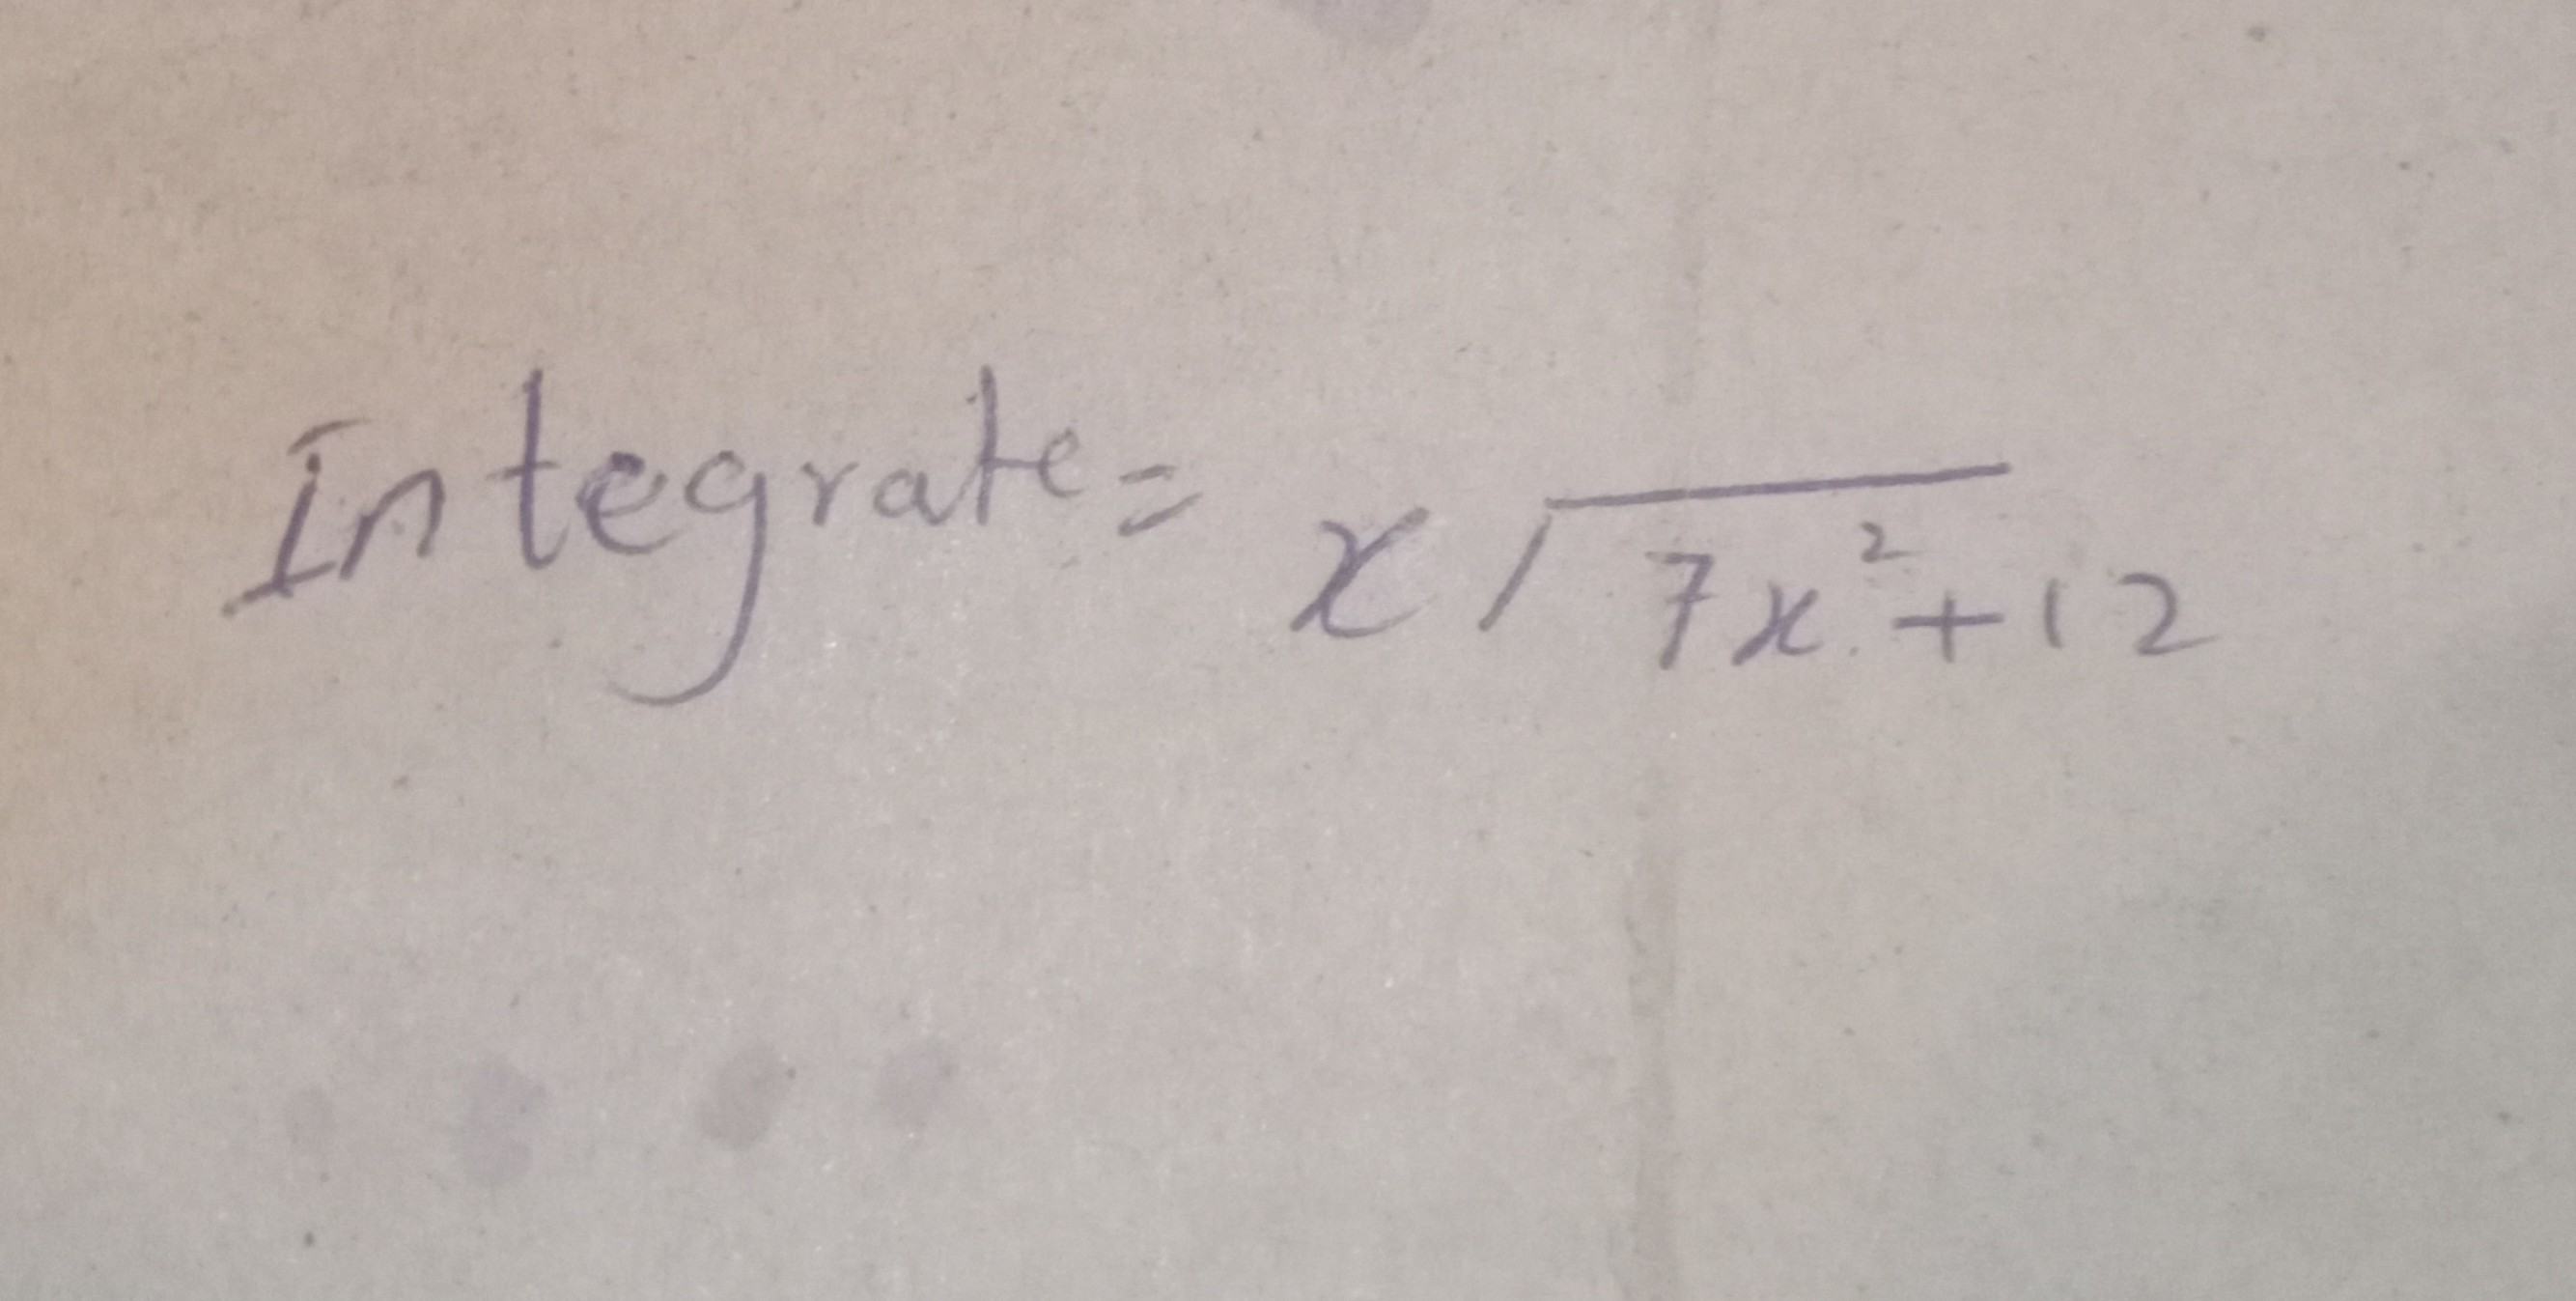 Integrate = x√7x²+12